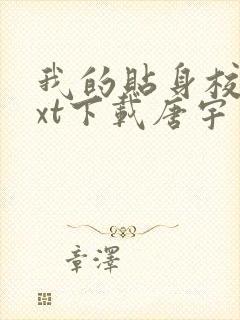 我的貼身校
xt下載唐宇
章澤